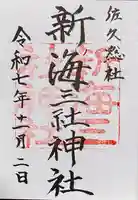 佐久総社
新海三社神社
令和七年十一月二日